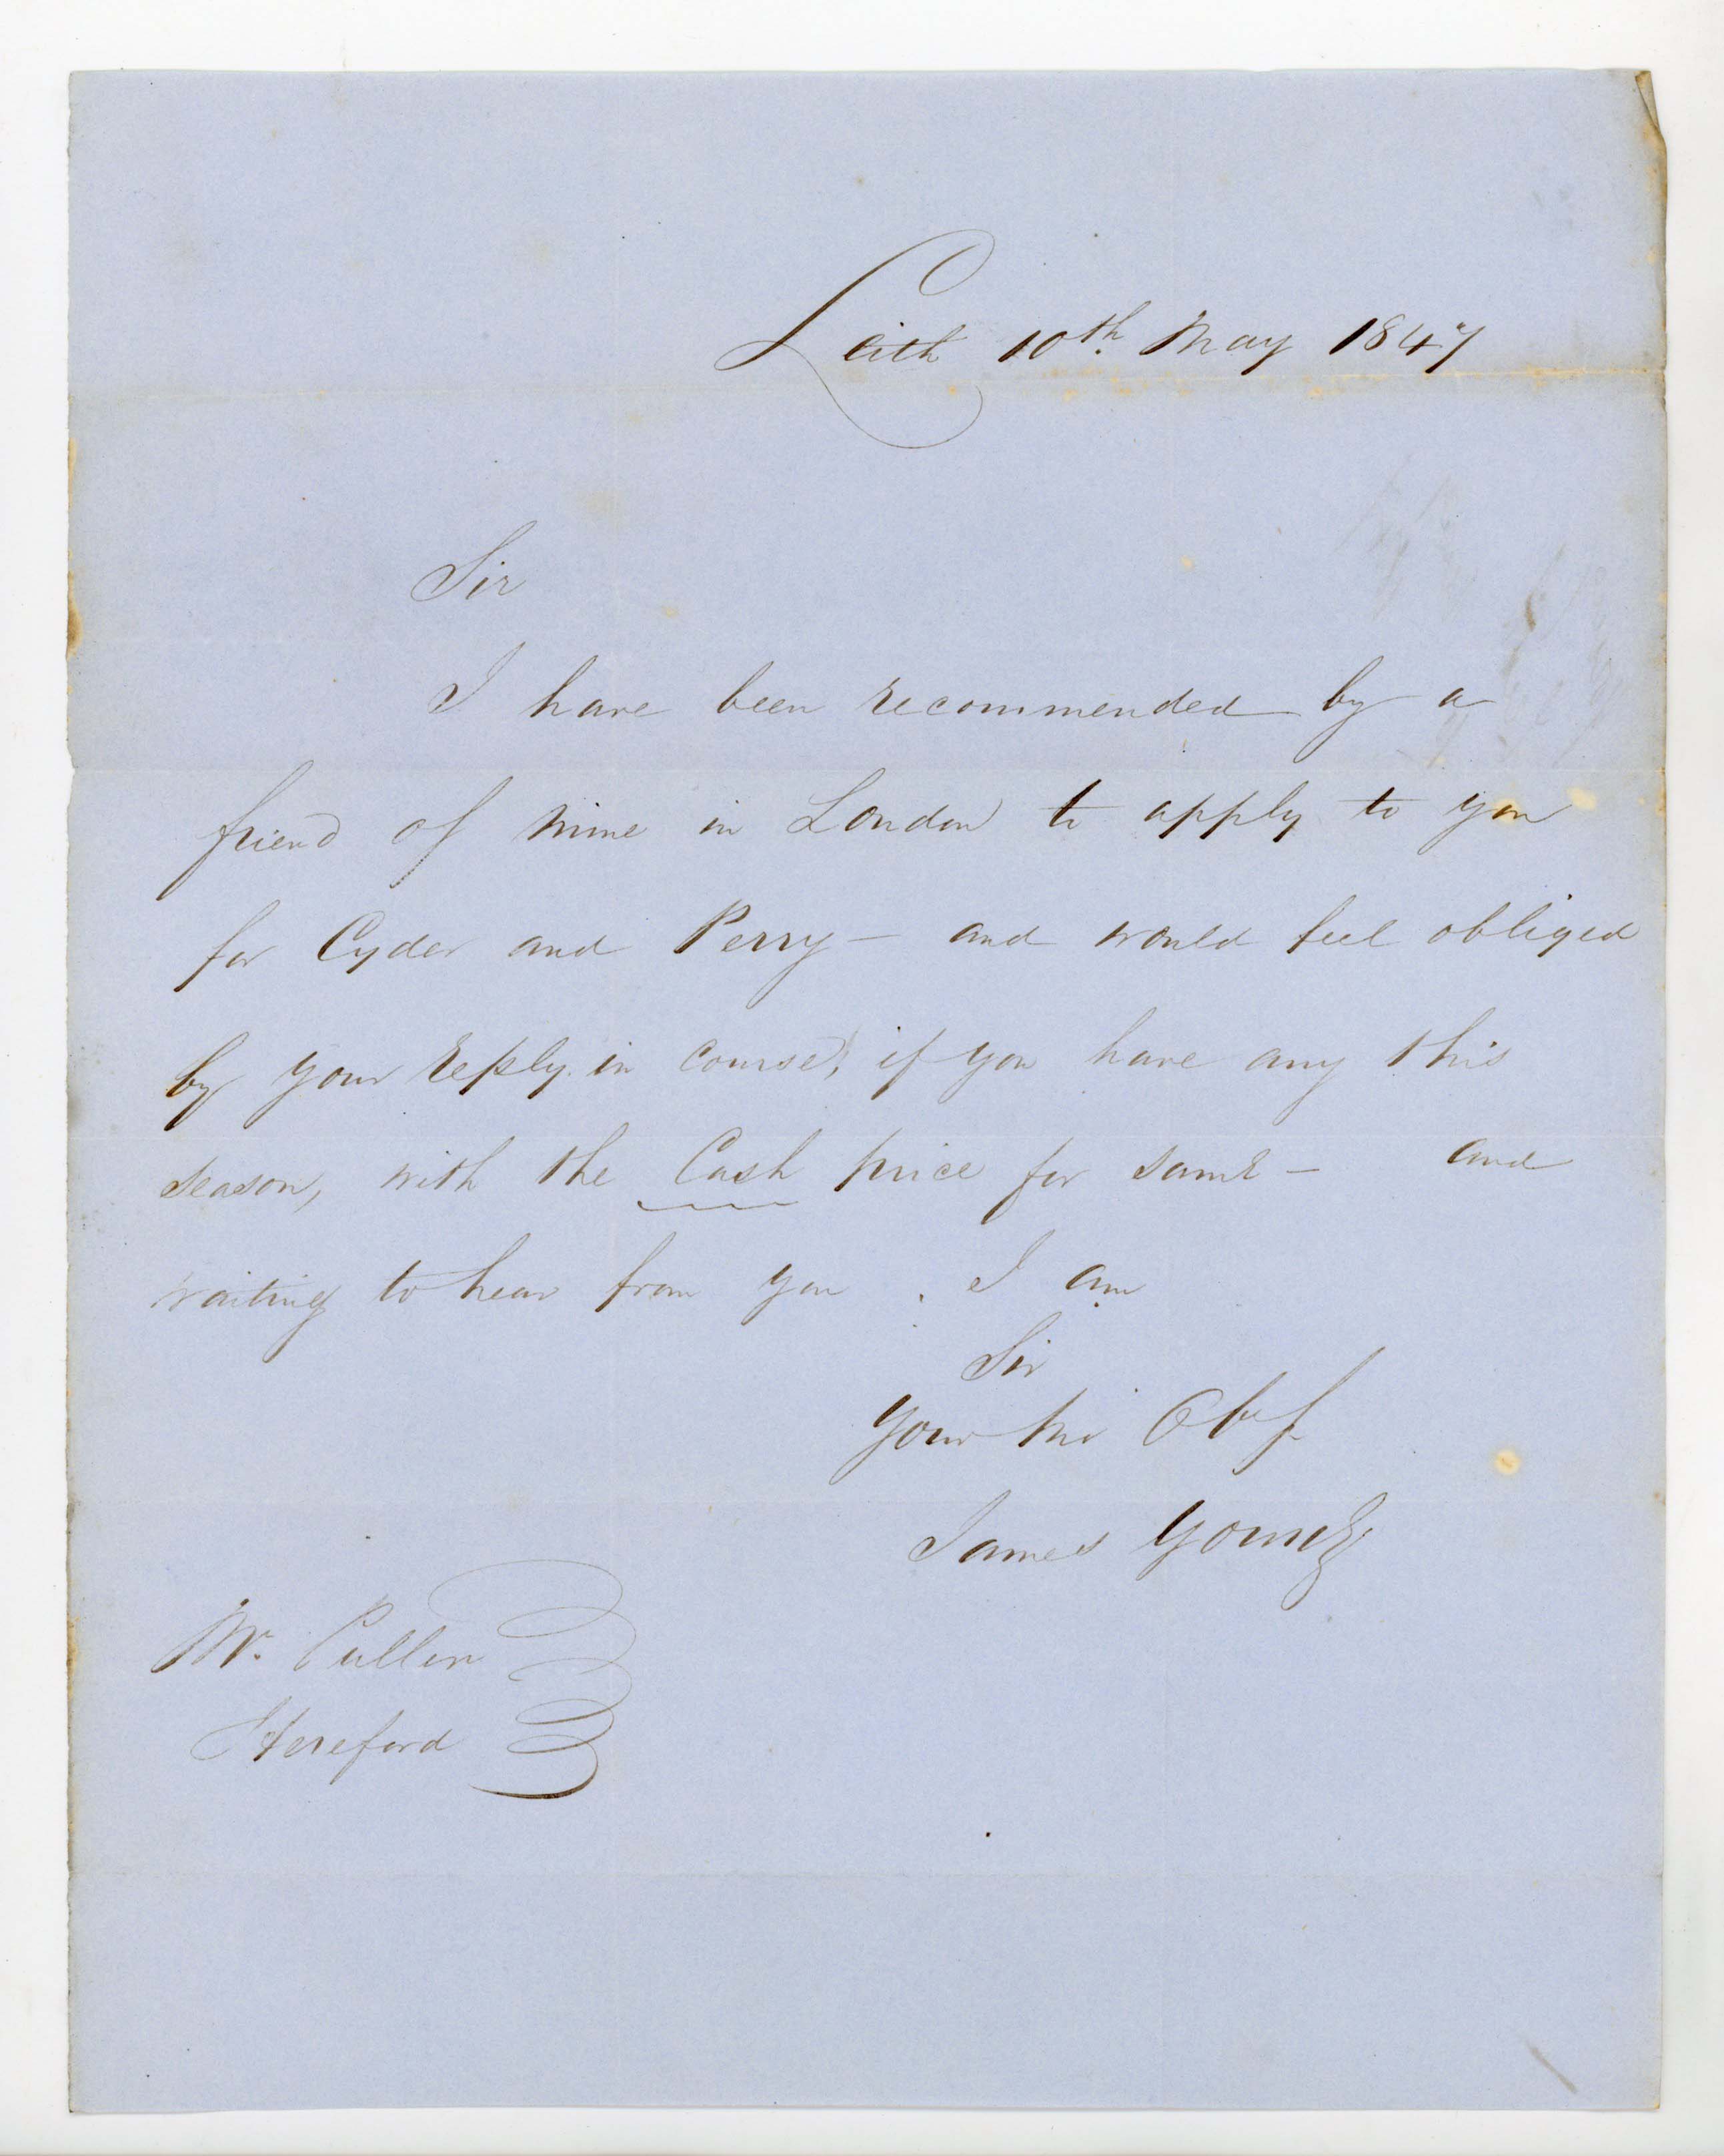 Leith 10th. May 1847
Sir
I have been recommended by a
friend of mine in London to apply to you
for Cyder and Perry — and would feel obliged
by your reply in course, if you have any this
season, with the Cash price for same — and
waiting to hear from you . I am
Sir
Your
James Young
Mr. Pullen
Hereford